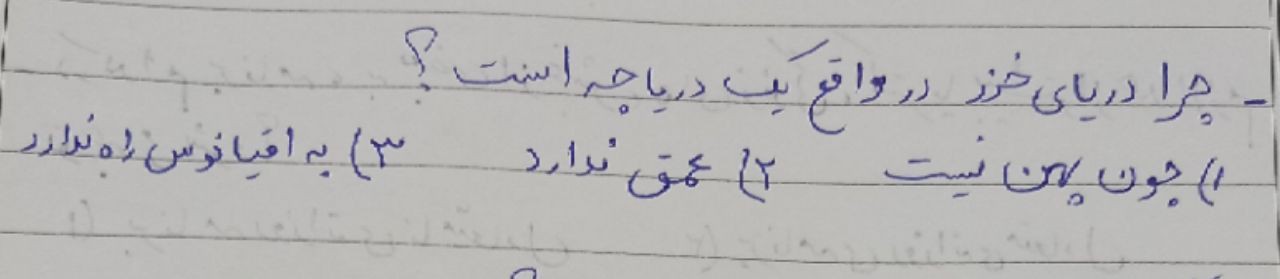 - چرا دریای خزر در واقع یک دریاچه است ؟
۱) چون پهن نیست ۲) عمق ندارد ۳) به اقیانوس راه ندارد